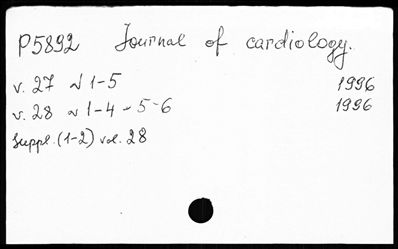 P5892 Journal of cardiology.
v. 27 N 1-5 1996
v. 28 N 1-4-5-6 1996
Suppl. (1-2) vol. 28